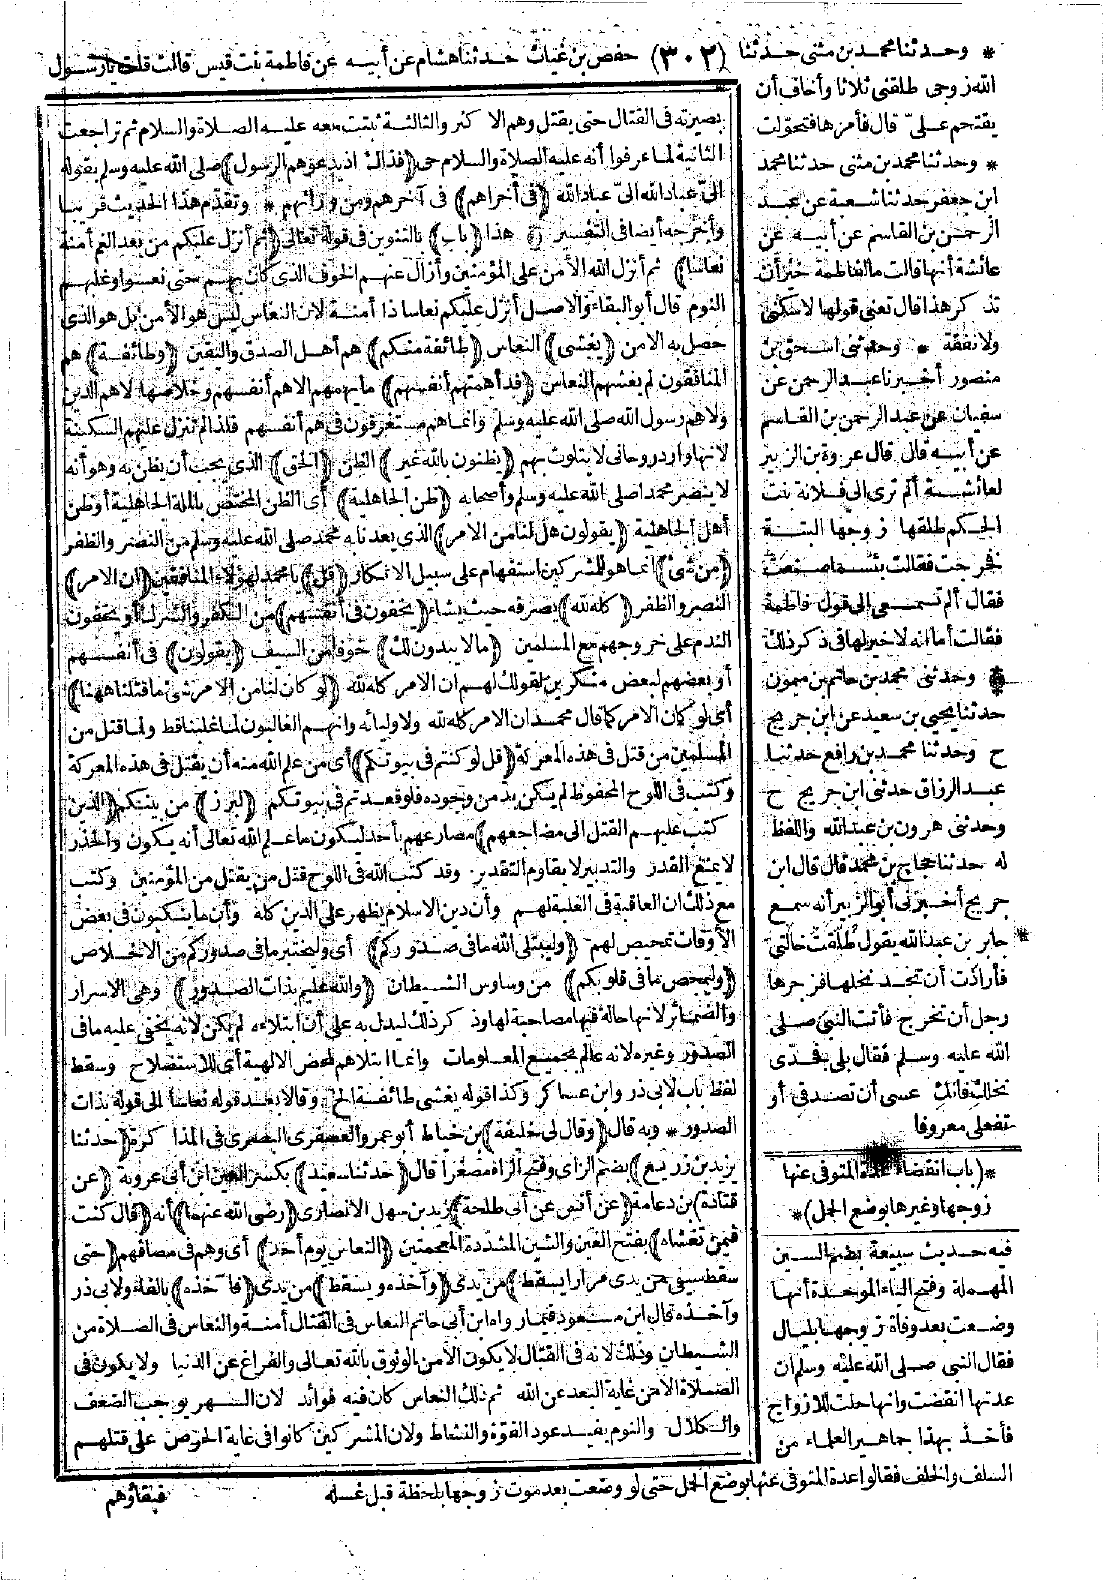 * وحدثنا محمد بن مثنى حدثنا (٣٠٢) حفص بن غياث حدثنا هشام عن أبيه عن فاطمة بنت قيس قالت قلت يا رسول
الله زوجى طلقنى ثلاثا وأخاف أن
يقتحم علىّ قال فأمرها فتحولت
* وحدثنا محمد بن مثنى حدثنا محمد
ابن جعفر حدثنا شعبة عن عبد
الرحمن بن القاسم عن أبيه عن
عائشة أنها قالت ما لفاطمة خير أن
تذكر هذا قال تعنى قولها لا سكنى
ولا نفقة * وحدثنى اسحق بن
منصور أخبرنا عبد الرحمن عن
سفيان عن عبد الرحمن بن القاسم
عن أبيه قال قال عروة بن الزبير
لعائشة ألم ترى الى فلانة بنت
الحكم طلقها زوجها البتة
فخرجت فقالت بئسما صنعت
فقال ألم تسمعى الى قول فاطمة
فقالت أما انه لا خير لها فى ذكر ذلك
* وحدثنى محمد بن حاتم بن ميمون
حدثنا يحيى بن سعيد عن ابن جريج
ح وحدثنا محمد بن رافع حدثنا
عبد الرزاق حدثنى ابن جريج ح
وحدثنى هرون بن عبد الله واللفظ
له حدثنا حجاج بن محمد قال قال ابن
جريج أخبرنى أبو الزبير أنه سمع
جابر بن عبد الله يقول طلقت خالتى
فأرادت أن تجد نخلها فزجرها
رجل أن تخرج فأتت النبى صلى
الله عليه وسلم فقال بلى فجدى
نخلك فانك عسى أن تصدقى أو
تفعلى معروفا
*(باب انقضاء عدة المتوفى عنها
زوجها وغيرها بوضع الحمل)*
فيه حديث سبيعة بضم السين
المهملة وفتح الباء الموحدة أنها
وضعت بعد وفاة زوجها بليال
فقال النبى صلى الله عليه وسلم ان
عدتها انقضت وانها حلت للازواج
فأخذ بهذا جماهير العلماء من
السلف والخلف فقالوا عدة المتوفى عنها بوضع الحمل حتى لو وضعت بعد موت زوجها بلحظة قبل غسله
بصيرته فى القتال حتى يقتل وهم الاكثر والثالثة ثبتت معه عليه الصلاة والسلام ثم تراجعت
الثانية لما عرفوا أنه عليه الصلاة والسلام حى (فذاك اذ يدعوهم الرسول) صلى الله عليه وسلم بقوله
الىّ عباد الله الىّ عباد الله (فى أخراهم) فى آخرهم ومن ورائهم * وتقدم هذا الحديث قريبا
وأخرجه أيضا فى التفسير هذا (باب) بالتنوين فى قوله تعالى (ثم أنزل عليكم من بعد الغم أمنة
نعاسا) ثم أنزل الله الأمن على المؤمنين وأزال عنهم الخوف الذى كان بهم حتى نعسوا وغلبهم
النوم قال أبو البقاء والاصل أنزل عليكم نعاسا ذا أمنة لان النعاس ليس هو الأمن بل هو الذى
حصل به الامن (يغشى) النعاس (طائفة منكم) هم أهل الصدق واليقين (وطائفة) هم
المنافقون لم يغشهم النعاس (قد أهمتهم أنفسهم) ما بهم الاهم أنفسهم وخلاصها لا هم الدين
ولا هم رسول الله صلى الله عليه وسلم وانما هم مستغرقون فى هم أنفسهم فلذا لم تنزل عليهم السكينة
لانها وارد روحانى لا يتلوث بهم (يظنون بالله غير) الظن (الحق) الذى يجب أن يظن به وهو أنه
لا ينصر محمدا صلى الله عليه وسلم وأصحابه (ظن الجاهلية) أى الظن المختص بالملة الجاهلية أو ظن
أهل الجاهلية (يقولون هل لنا من الامر) الذى يعدنا به محمد صلى الله عليه وسلم من النصر والظفر
(من شئ) انما هو للمشركين استفهام على سبيل الانكار (قل) يا محمد لهؤلاء المنافقين (ان الامر)
النصر والظفر (كله لله) يصرفه حيث يشاء (يخفون فى أنفسهم) من الكفر والشرك أو يخفون
الندم على خروجهم مع المسلمين (ما لا يبدون لك) خوفا من السيف (يقولون) فى أنفسهم
أو بعضهم لبعض منكرين لقولك لهم ان الامر كله لله (لو كان لنا من الامر شئ ما قتلنا ههنا)
أى لو كان الامر كما قال محمد ان الامر كله لله ولاوليائه وانهم الغالبون لما غلبنا قط ولما قتل من
المسلمين من قتل فى هذه المعركة (قل لو كنتم فى بيوتكم) أى من علم الله منه أن يقتل فى هذه المعركة
وكتب فى اللوح المحفوظ لم يكن بد من وجوده فلو قعدتم فى بيوتكم (لبرز) من بينكم (الذين
كتب عليهم القتل الى مضاجعهم) مصارعهم بأحد ليكون ما علم الله تعالى أنه يكون والحذر
لا يمنع القدر والتدبير لا يقاوم التقدير وقد كتب الله فى اللوح قتل من يقتل من المؤمنين وكتب
مع ذلك ان العاقبة فى الغلبة لهم وأن دين الاسلام يظهر على الدين كله وأن ما ينكبون فى بعض
الأوقات تمحيص لهم (وليبتلى الله ما فى صدوركم) أى وليختبر ما فى صدوركم من الاخلاص
(وليمحص ما فى قلوبكم) من وساوس الشيطان (والله عليم بذات الصدور) وهى الاسرار
والضمائر لانها حالة فيها مصاحبة لها وذكر ذلك ليدل به على أن ابتلاءه لم يكن لانه يخفى عليه ما فى
الصدور وغيره لانه عالم بجميع المعلومات وانما ابتلاهم لمحض الالهية أى للاستصلاح وسقط
لفظ باب لابى ذر وابن عساكر وكذا قوله يغشى طائفة الخ وقالا بعد قوله نعاسا الى قوله بذات
الصدور * وبه قال (وقال لى خليفة) بن خياط أبو عمرو العصفرى البصرى فى المذاكرة (حدثنا
يزيد بن زريع) بضم الزاى وفتح الراء مصغرا قال (حدثنا سعيد) بكسر العين ابن أبى عروبة (عن
قتادة) بن دعامة (عن أنس عن أبى طلحة) زيد بن سهل الانصارى (رضى الله عنهما) أنه (قال كنت
فيمن تغشاه) بفتح الغين والشين المشددة المعجمتين (النعاس يوم أحد) أى وهم فى مصافهم (حتى
سقط سيفى من يدى مرارا يسقط) من يدى (وآخذه ويسقط) من يدى (فآخذه) بالفاء ولابى ذر
وآخذه قال ابن مسعود فيما رواه ابن أبى حاتم النعاس فى القتال أمنة والنعاس فى الصلاة من
الشيطان وذلك لانه فى القتال لا يكون الا من الوثوق بالله تعالى والفراغ عن الدنيا ولا يكون فى
الصلاة الا من غاية البعد عن الله ثم ذلك النعاس كان فيه فوائد لان السهر يوجب الضعف
والكلال والنوم يفيد عود القوة والنشاط ولان المشركين كانوا فى غاية الحرص على قتلهم
فبقاؤهم